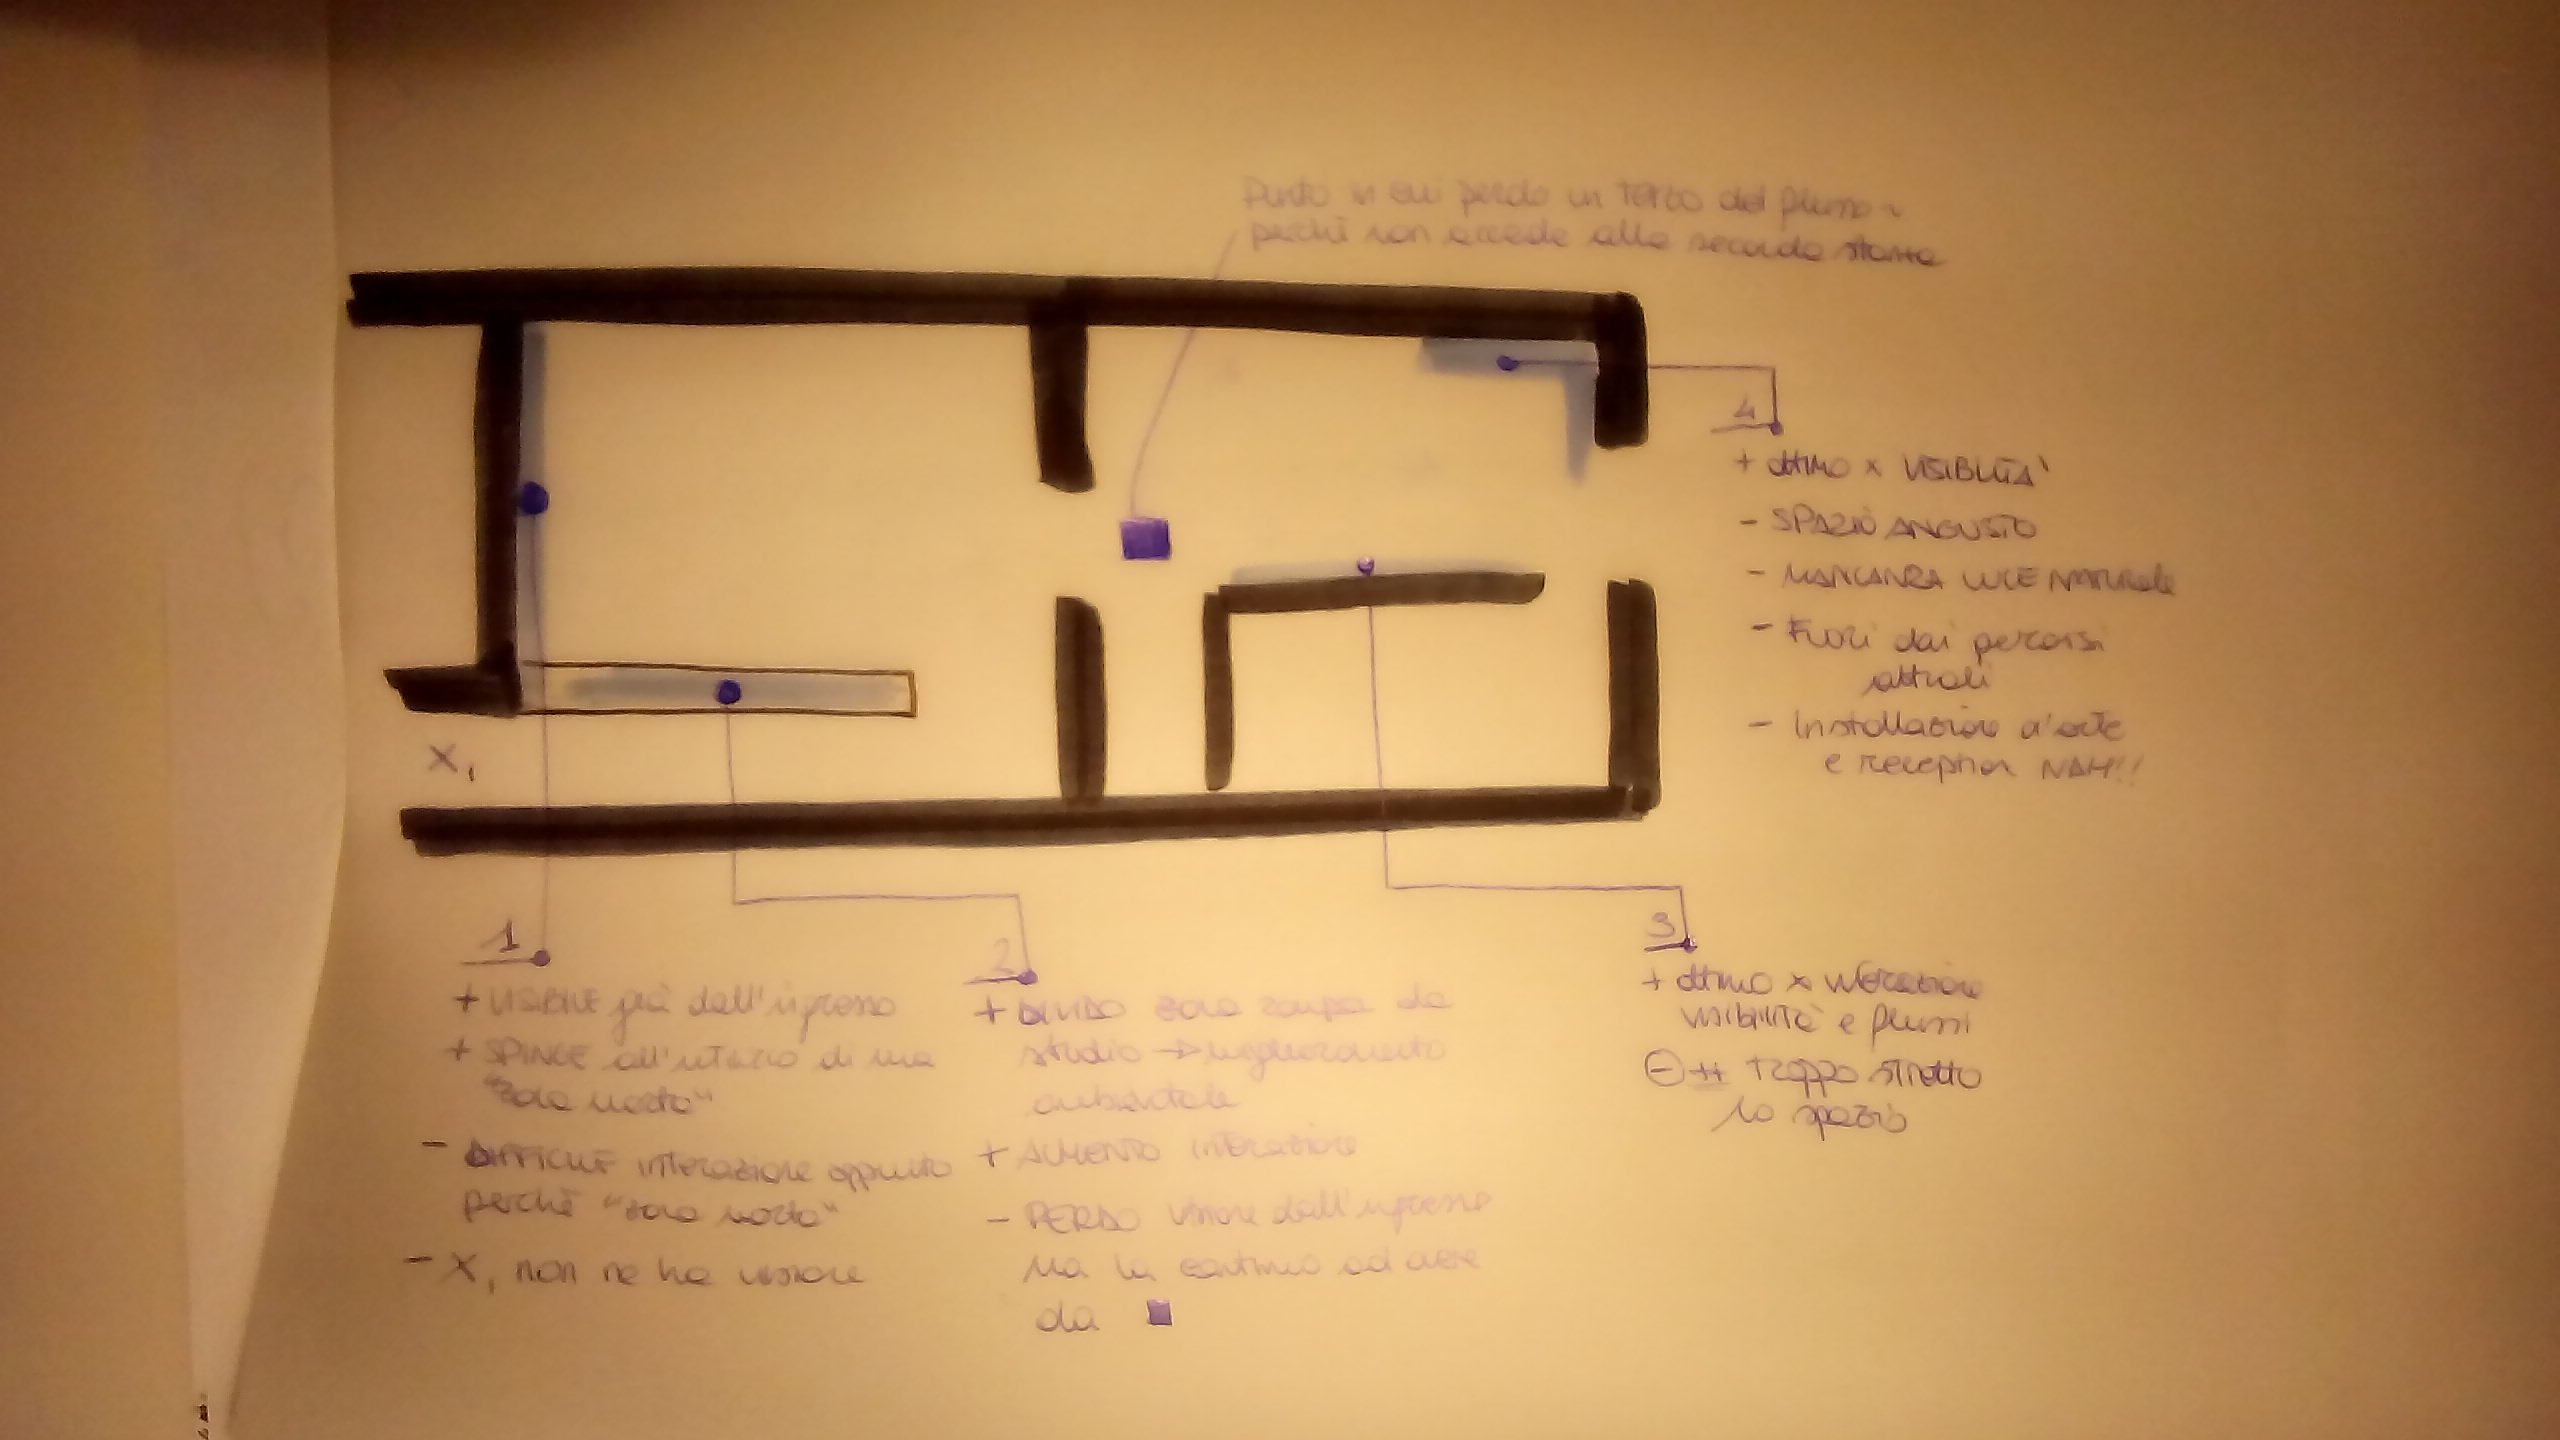 Punto in cui perdo un terzo del flusso
perchè non accede alla seconda stanza
4
+ ottimo x VISIBILITÀ
- SPAZIO ANGUSTO
- MANCANZA LUCE NATURALE
- Fuori dai percorsi
attuali
- Installazione d'arte
e reception NAH!!
X1
1
+ VISIBILE già dall'ingresso
+ SPINGE all'utilizzo di una
"zona morta"
- DIFFICILE interazione appunto
perchè "zona morta"
- X1 non ne ha visione
2
+ DIVIDO zona da
studio → miglioramento
ambientale
+ AUMENTO interazione
- PERDO visione dall'ingresso
ma la continuo ad avere
da
3
+ ottimo x interazione
visibilità e flussi
- ++ troppo stretto
lo spazio